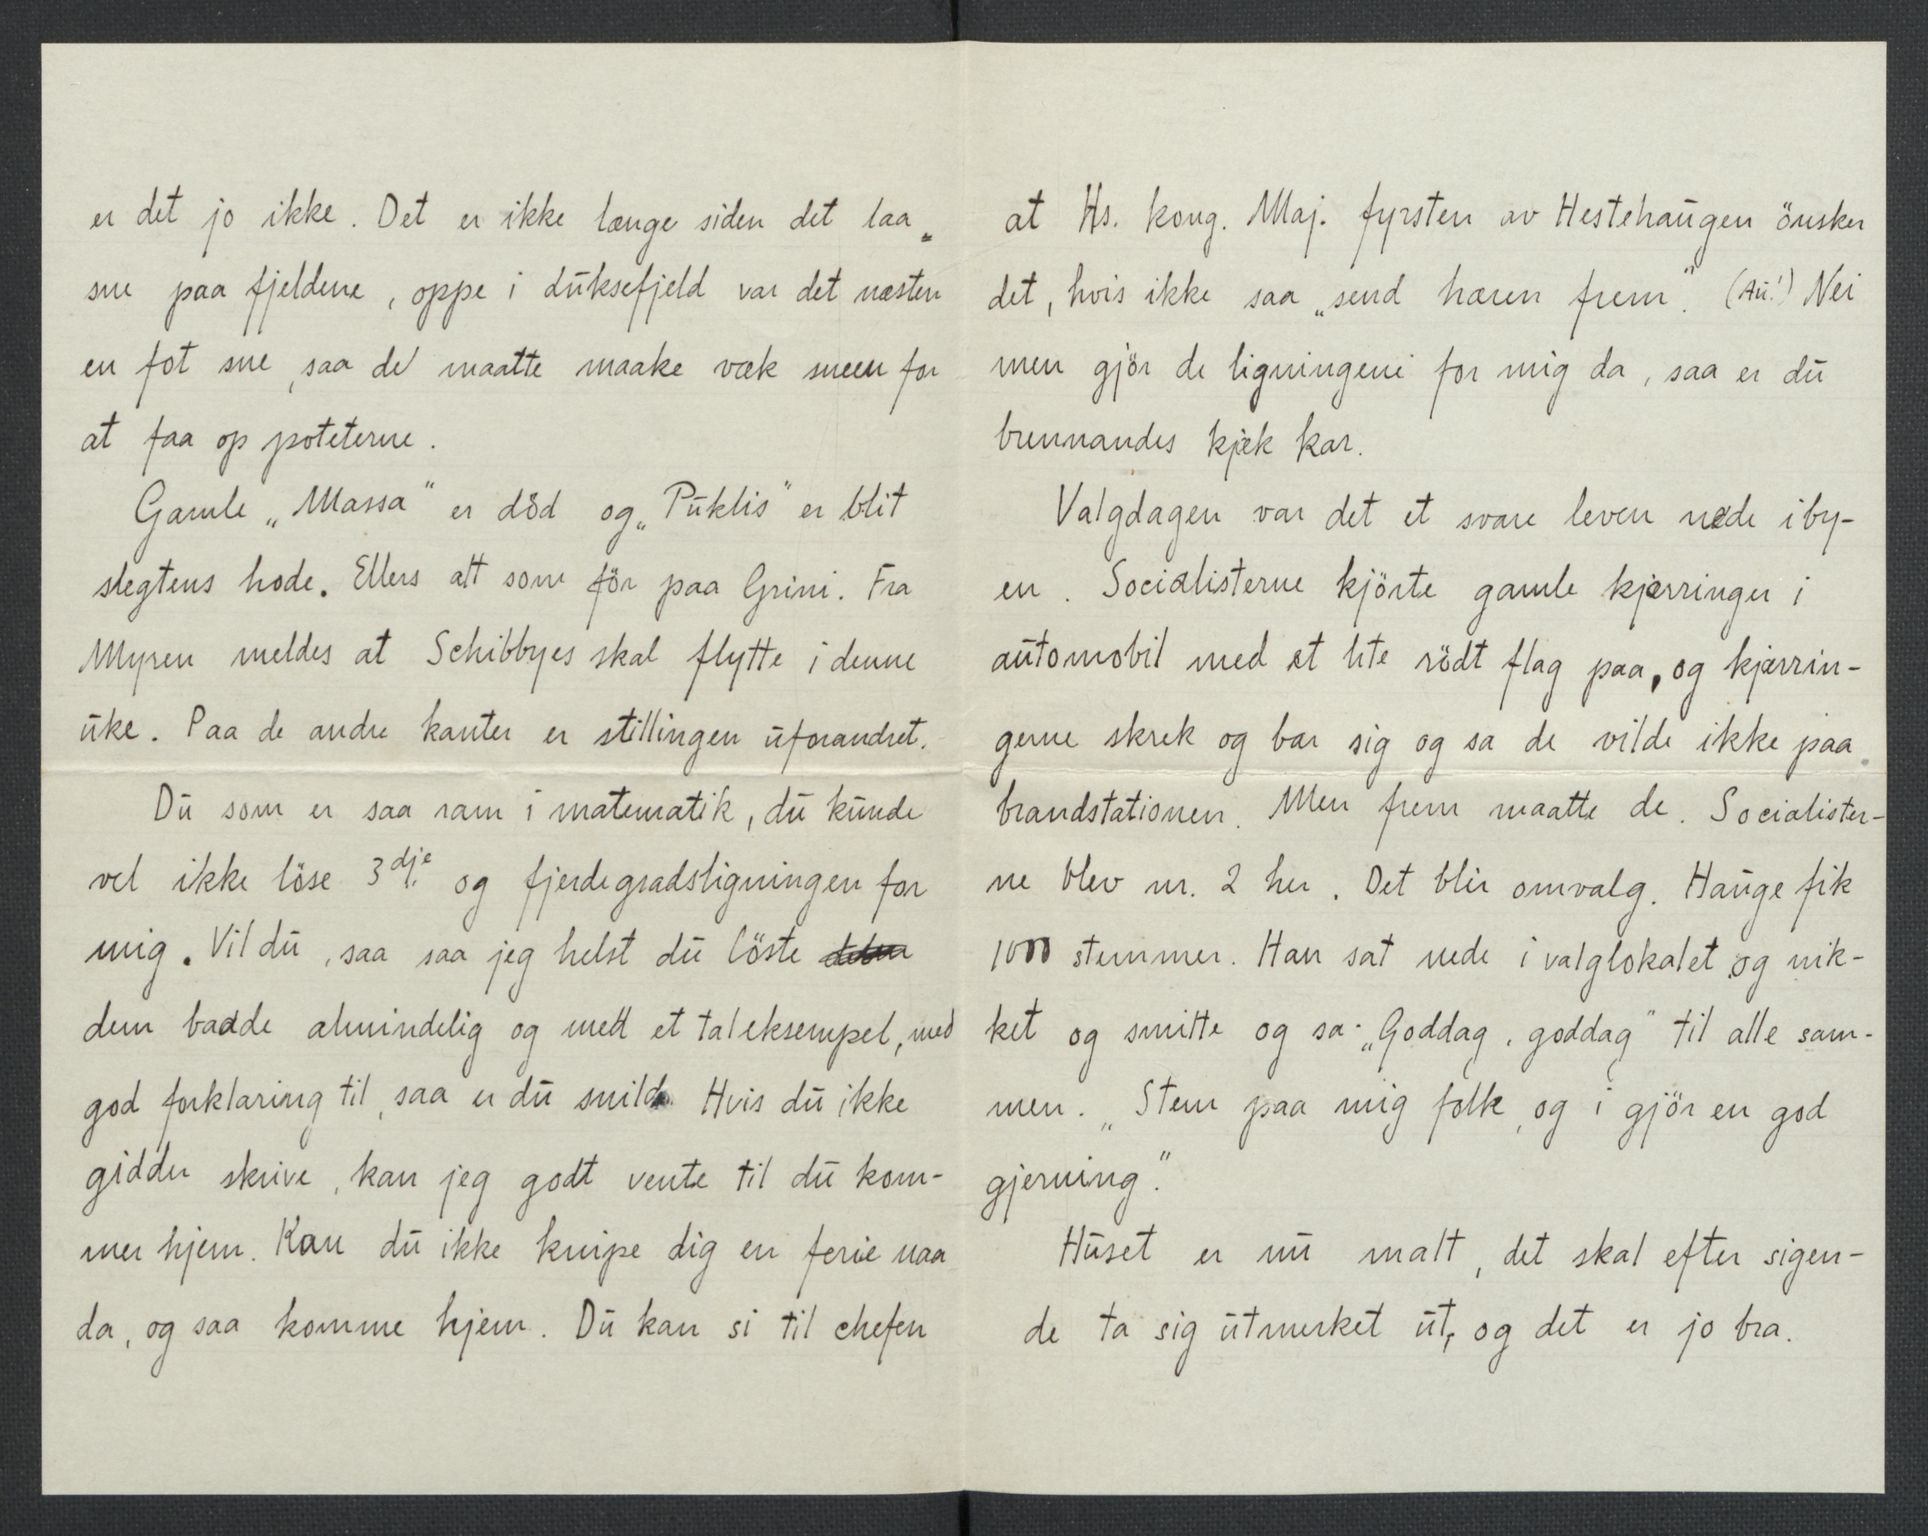 er det jo ikke. Det er ikke længe siden det laa
sne paa fjeldene, oppe i duksefjeld var det næsten
en fot sne, saa de maatte maake væk sneen for
at faa op poteterne.
Gamle „Massa" er död og „Puklis" er blit
slegtens hode. Ellers alt som för paa Grini. Fra
Myren meldes at Schibbyes skal flytte i denne
uke. Paa de andre kanter er stillingen uforandret.
Du som er saa ram i matematik, du kunde
vel ikke löse 3dje og fjerdegradsligningen for
mig. Vil du, saa saa jeg helst du löste
dem baade almindelig og med et taleksempel, med
god forklaring til, saa er du snild. Hvis du ikke
gidder skrive, kan jeg godt vente til du kom-
mer hjem. Kan du ikke knipe dig en ferie naa
da, og saa komme hjem. Du kan si til chefen
at Hs. kong. Maj. fyrsten av Hestehaugen önsker
det, hvis ikke saa „send hæren frem". (Au!) Nei
men gjör de ligningene for mig da, saa er du
brennandes kjæk kar.
Valgdagen var det et svare leven nede i by-
en. Socialisterne kjörte gamle kjærringer i
automobil med et lite rödt flag paa, og kjærrin-
gerne skrek og bar sig og sa de vilde ikke paa
brandstationen. Men frem maatte de. Socialister-
ne blev nr. 2 her. Det blir omvalg. Hauge fik
1000 stemmer. Han sat nede i valglokalet og nik-
ket og smilte og sa: „Goddag, goddag" til alle sam-
men. „Stem paa mig folk, og i gjör en god
gjerning".
Huset er nu malt, det skal efter sigen-
de ta sig utmerket ut, og det er jo bra.